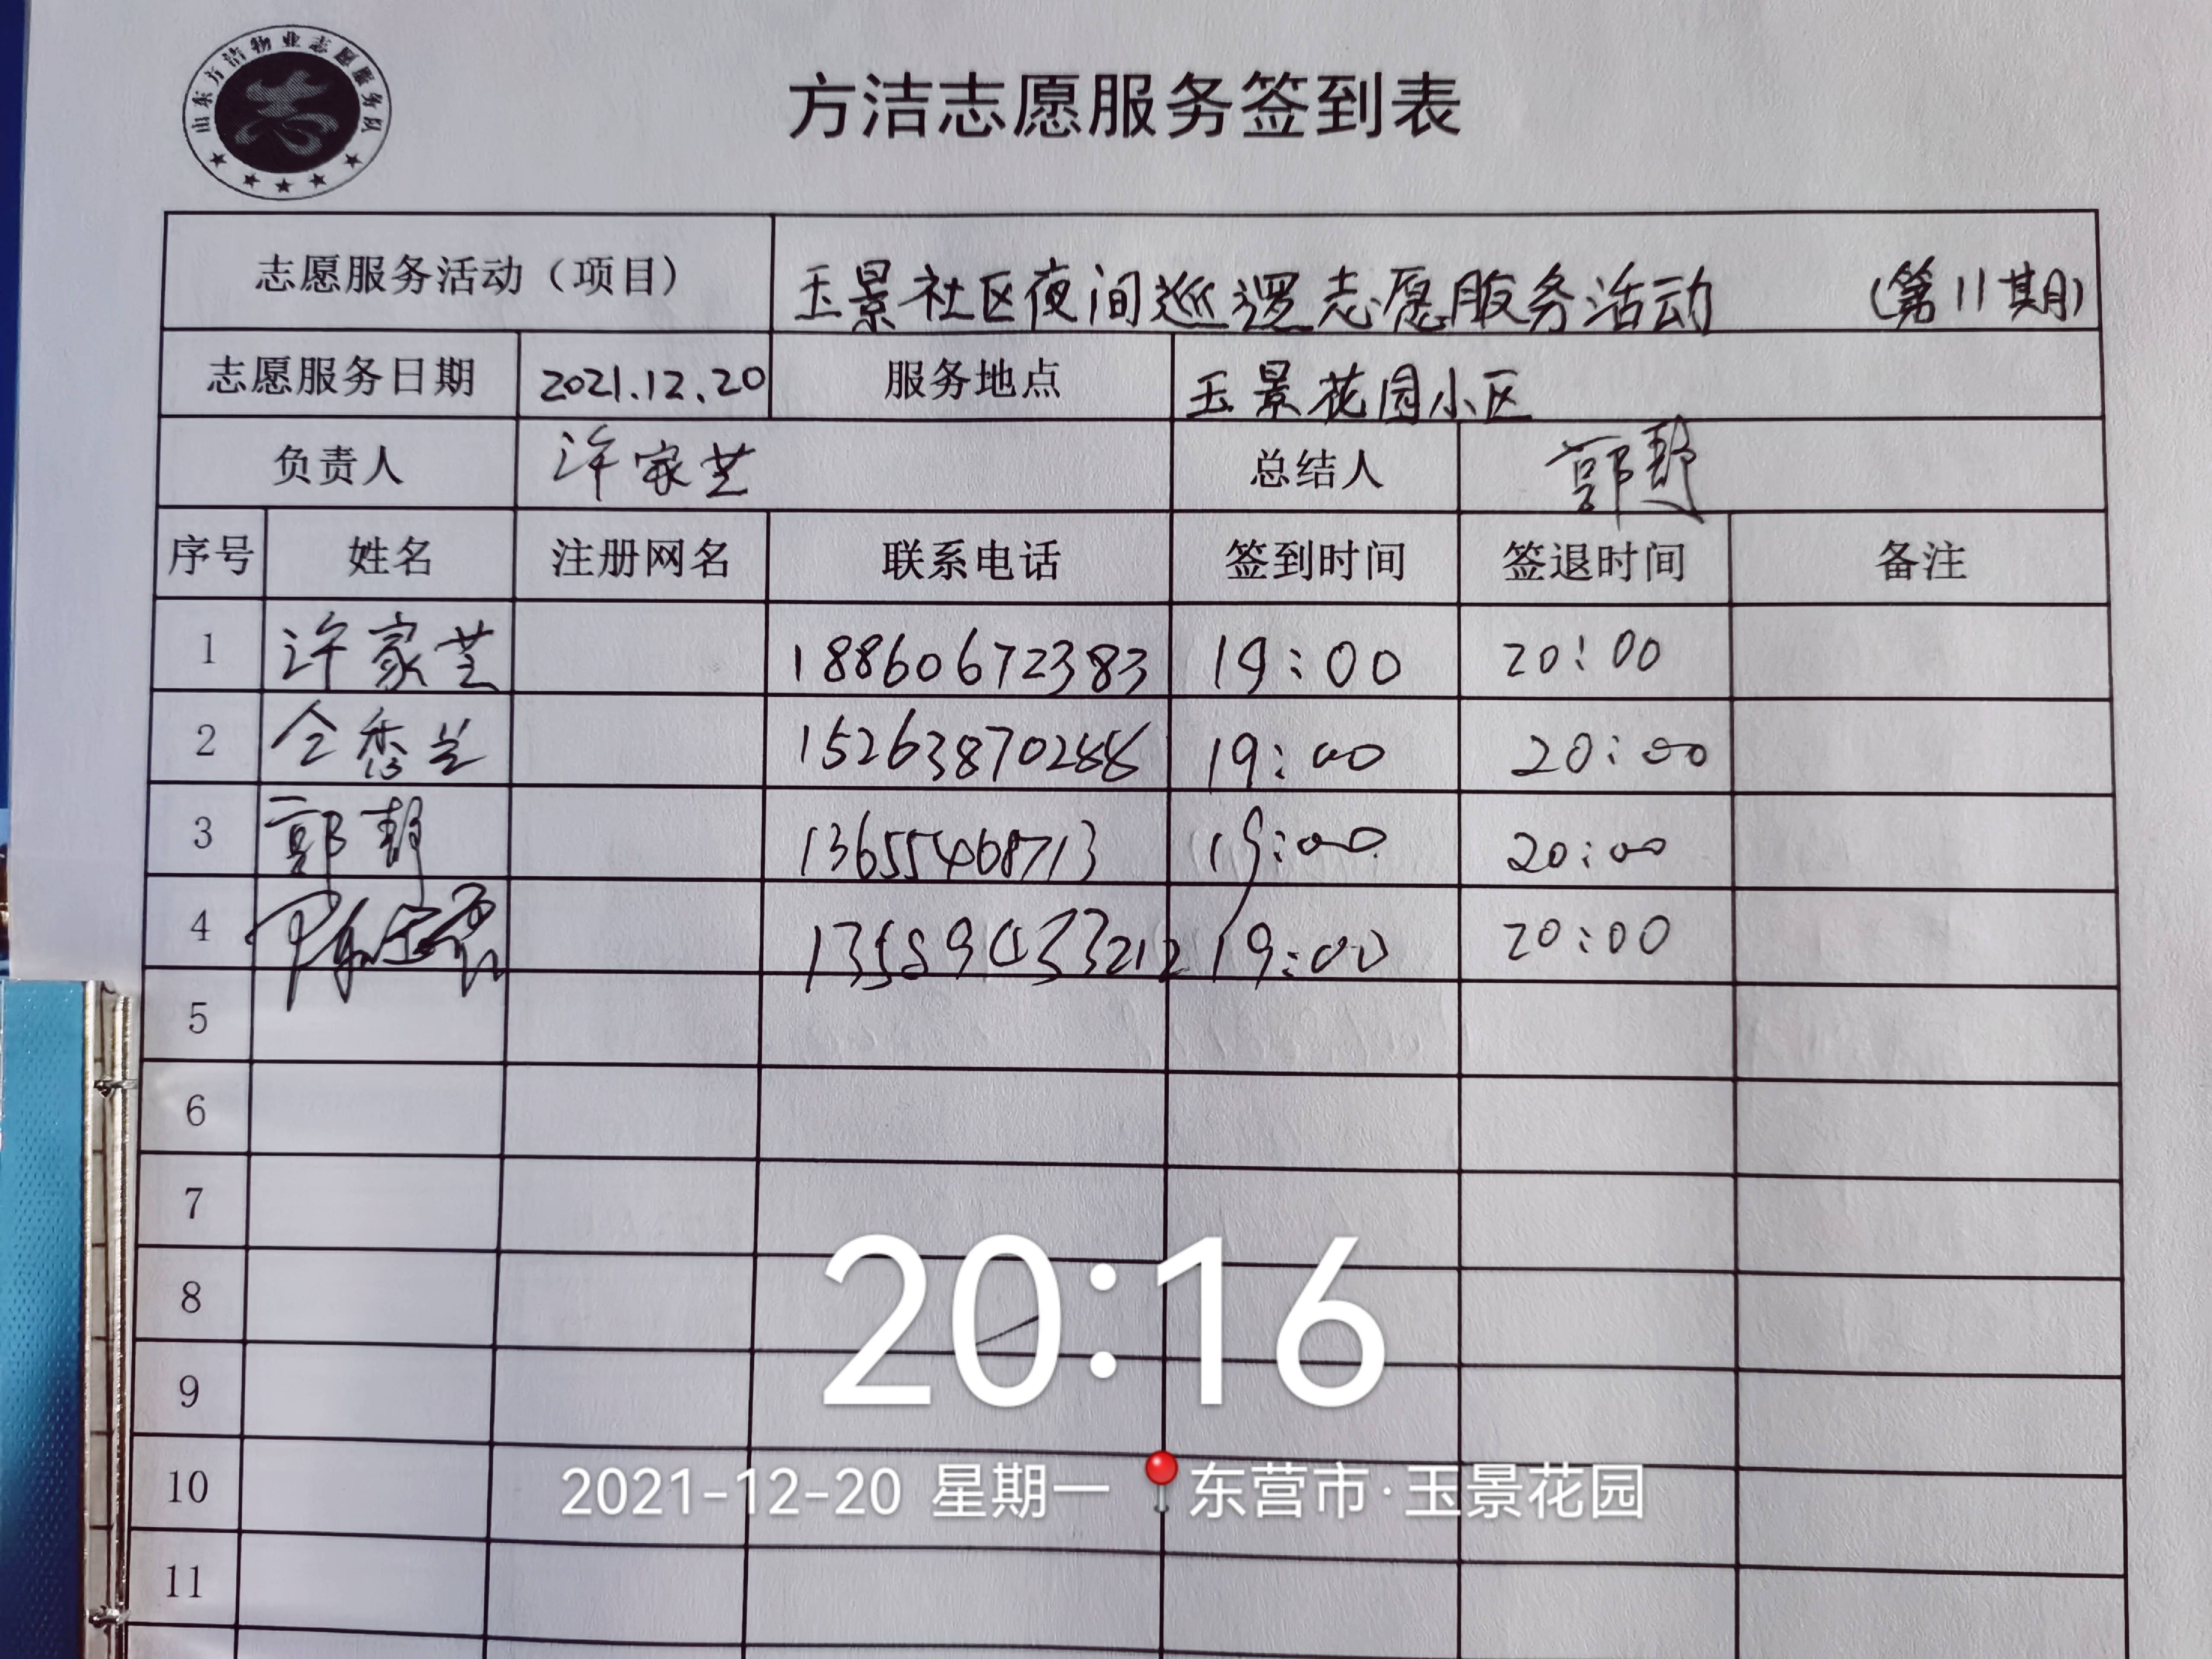 山东方洁物业志愿服务队
志
方洁志愿服务签到表
志愿服务活动（项目） 玉景社区夜间巡逻志愿服务活动 （第11期）
志愿服务日期 2021.12.20 服务地点 玉景花园小区
负责人 许家芝 总结人 郭
序号 姓名 注册网名 联系电话 签到时间 签退时间 备注
1 许家芝 18860672383 19:00 20:00
2 仝秀兰 15263870288 19:00 20:00
3 郭 13655468713 19:00 20:00
4 19:00 20:00
5
6
7
8
9
10
11
20:16
2021-12-20 星期一 东营市·玉景花园